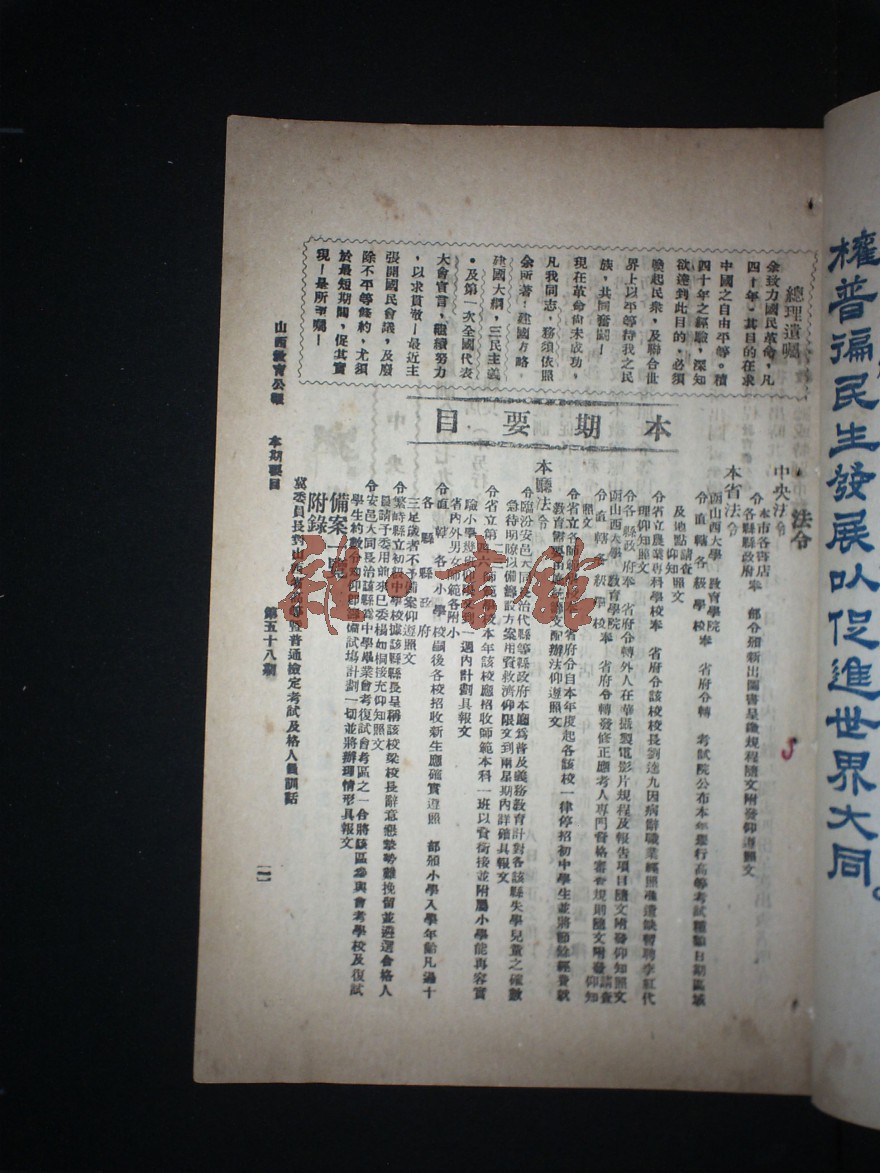 權普徧民生發展以促進世界大同。
總理遺囑
余致力國民革命，凡
四十年，其目的在求
中國之自由平等。積
四十年之經驗，深知
欲達到此目的，必須
喚起民衆，及聯合世
界上以平等待我之民
族，共同奮鬭！
現在革命尚未成功，
凡我同志，務須依照
余所著：建國方略，
建國大綱，三民主義
，及第一次全國代表
大會宣言，繼續努力
，以求貫徹！最近主
張開國民會議，及廢
除不平等條約，尤須
於最短期間，促其實
現！是所至囑！
本期要目
法令
中央法令
令本市各書店 各縣縣政府奉 部令頒新出圖書呈繳規程隨文附發仰遵照文
本省法令
函山西大學 教育學院
令直轄各級學校奉 省府令轉 考試院公布本年舉行高等考試種類日期區域
及地點請查 仰知照文
令省立農業專科學校奉 省府令該校校長劉逵九因病辭職業經照准遺缺暫聘李紅代
理仰知照文
令各縣縣政府奉 省府令轉外人在華攝製電影片規程及報告項目隨文附發仰知照文
函山西大學 教育學院
令直轄各級學校奉 省府令轉發修正應考人專門資格審查規則隨文附發請查 仰知
照文
令省立各師範 省府令自本年度起各該校一律停招初中學生並將節餘經費就
教育需要 支配辦法仰遵照文
本廳法令
令臨汾安邑大同長治代縣等縣政府本廳爲普及義務教育計對各該縣失學兒童之確數
急待明瞭以備籌設方案用資救濟仰限文到兩星期內詳確具報文
令省立第二 四六師範學校本年該校應招收師範本科一班以資銜接並附屬小學能再容實
驗小學幾班仰 文到一週內計劃具報文
省內外男女師範各附小
令直轄各小學校嗣後各校招收新生應確實遵照 部頒小學入學年齡凡過十
各縣縣政府
三足歲者不予備案仰遵照文
令繁峙縣立初級中學校據該縣縣長呈稱該校梁校長辭意懇摯勢難挽留並遴選合格人
員請予委用前來已委楊如桐接充仰知照文
令安邑大同長治該縣爲中學畢業會考復試會考區之一合將該區參與會考學校及復試
學生約數令知仰即籌備試場計劃一切並將辦理情形具報文
備案一覽
附錄
冀委員長對山西 普通檢定考試及格人員訓話
山西教育公報 本期要目 第五十八期 一
雜·書館